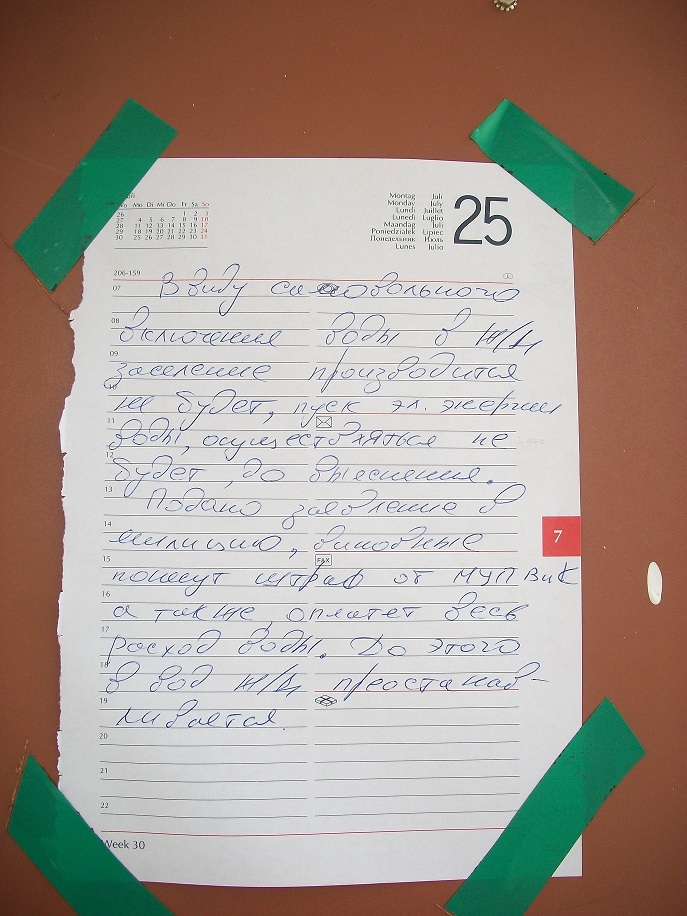 Wo Mo Di Mi Do Fr Sa So
26 1 2 3
27 4 5 6 7 8 9 10
28 11 12 13 14 15 16 17
29 18 19 20 21 22 23 24
30 25 26 27 28 29 30 31
Montag Juli
Monday July
Lundi Juillet
Lunedì Luglio
Maandag Juli
Poniedziałek Lipiec
Понедельник Июль
Lunes Julio
25
206-159
07 В виду самовольного
08 включения воды в ж/д
09 заселение производится
10 не будет, пуск эл. энергии
11 воды, осуществляться не
12 будет, до выеснения.
13 Подано заявление в
14 милицию, виновные
7
FAX
15 понесут штраф от МУП ВиК
16 а так же, оплатет весь
17 расход воды. До этого
18 в вод ж/д преостанав-
19 ливается.
20
21
22
Week 30